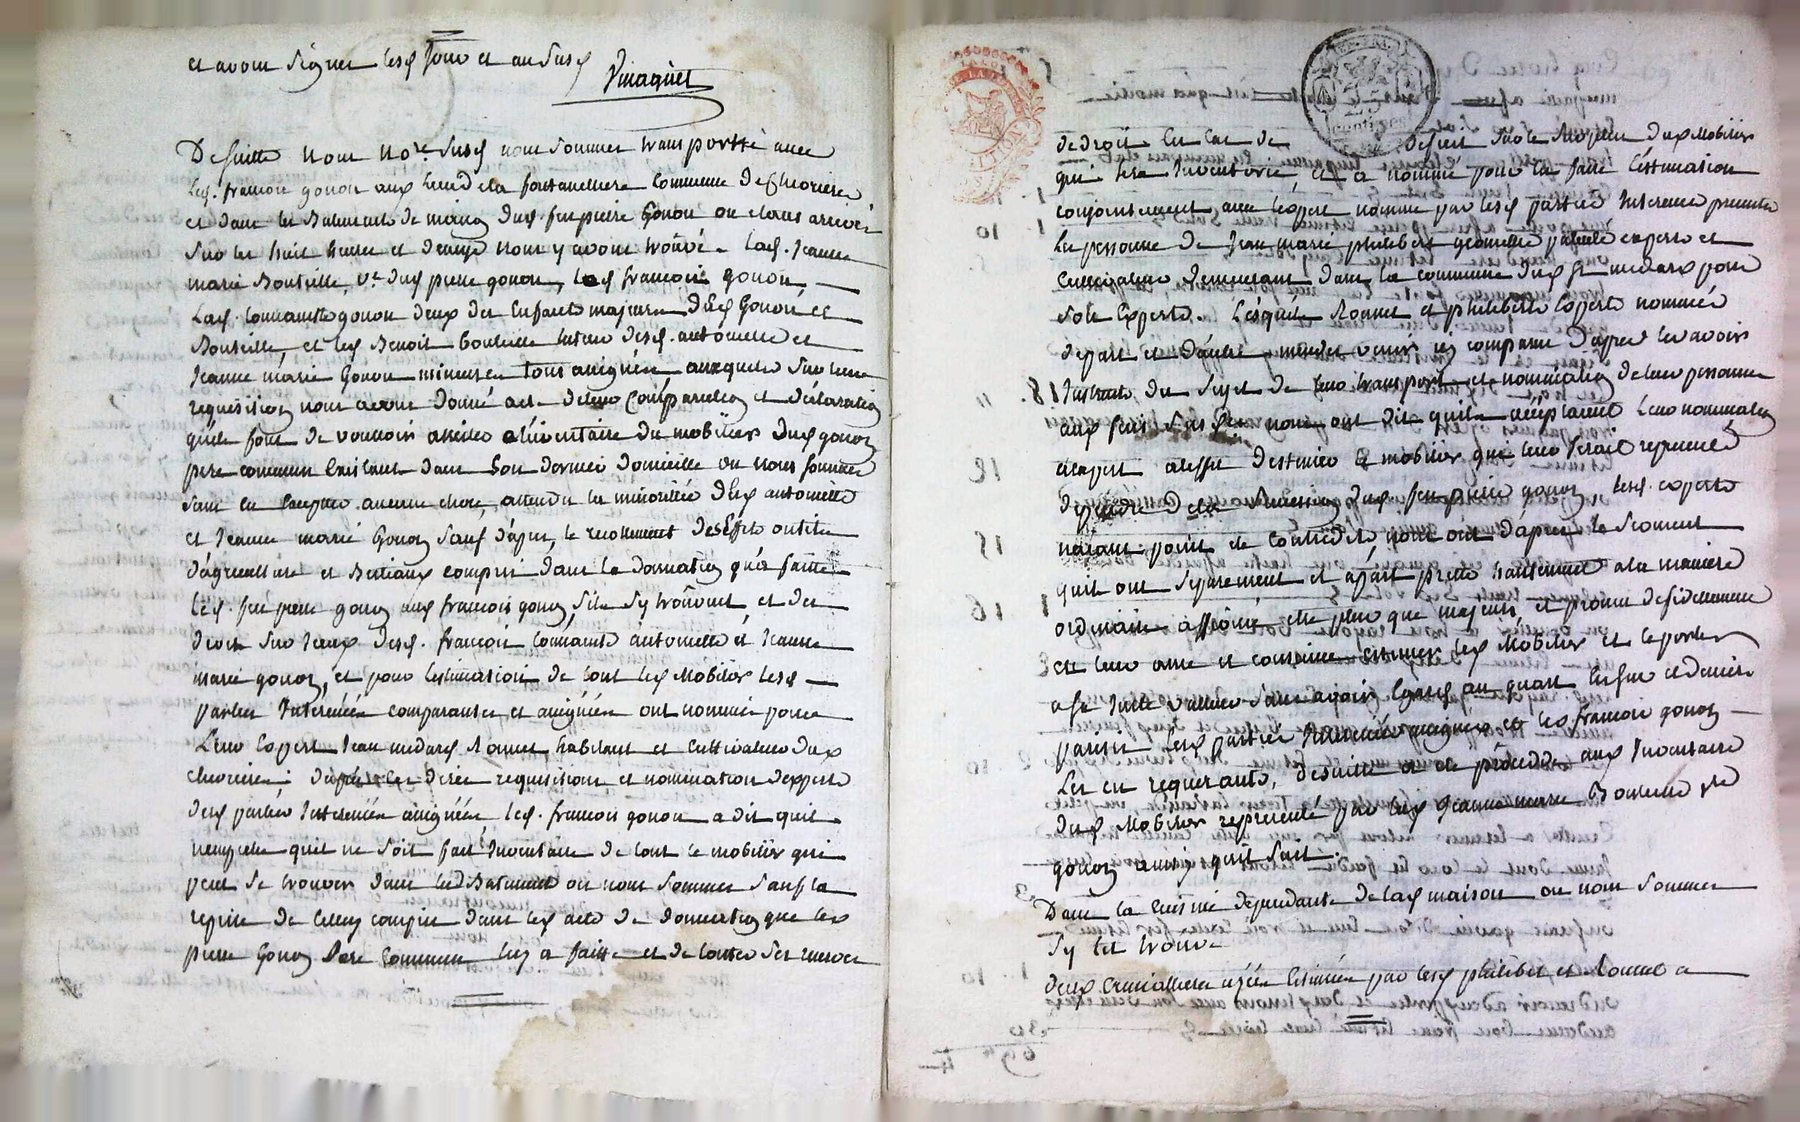 et avons signer lesd jour et an susd
Vinaquet
De suitte nous No.re susd nous sommes transportté avec
led. francois gonon aux lieu de la fontanelliere commune de chevriere
et dans les Batiments de maison dud. feu pierre Gonon ou etans arrivés
sur les huit heures et demye nous y avons trouvé lad. Jeanne
marie Bouteille, v.e dud pierre gonon, led francois gonon
Lad. gonon deux des Enfants majeurs dud Gonon et
Bouteille, et led Benoit bouteille tuteur desd. antoinette et
Jeanne marie Gonon mineures tous auxquels sur leur
requisition nous avons donné acte de leur Comparution et déclaration
quils font de vouloir assister a l'inventaire du mobilier dud gonon
pere commun Existant dans son dernier domicille ou nous sommes
sans en Excepter aucune chose, attendu la minoritée desd antoinette
et Jeanne marie Gonon sauf d'apres le recollement des Effets outils
d'agriculture et Bestiaux compris dans la donnation qu'a faitte
led. feu pierre gonon aud francois gonon s'ils s'y trouvent et des
droits sur iceux desd. francois antoinette et Jeanne
marie gonon, et pour l'estimation de tout led Mobilier lesd
parties interessées comparantes et ont nommé pour
Leur Expert Jean medard Monnet habitant et cultivateur dud
chevriere: d'apres les dires requisitions et nomination d'expert
desd parties Interessées led. francois gonon a dit quil
n'empeche quil ne soit fait Inventaire de tout le mobilier qui
peut se trouver dans lesd Batiments ou nous sommes sauf la
reprise de celluy compris dans led acte de donnation que led
pierre Gonon Pere Commun luy a faitte et de touttes ses reserves
de droit En cas de deficit sur le Mojeur dud Mobilier
qui sera Inventorié et a nommé pour en faire l'estimation
conjointement avec l'expert nommé par lesd parties Interessées presentes
La personne de Jean marie philibert experts et
Cultivateur demeurant dans la commune dud St medard pour
son Experts. Lesquels Monnet et philibert Experts nommés
de part et d'autre icy comparus d'apres les avoir
Instruits du sujet de leur transport et nomination de leur personne
aux fins susd nous ont dit quils acceptaient leur nomination
a l'effet d'estimer le mobilier qui leur serait representé
dependre de la succession dud feu pierre gonon, lesd. experts
n'étant point de contredits, nous ont d'apres le serment
quil ont separement et apart pretté hautement a la maniere
ordinaire affirmé etre plus que majeurs, et promis de fidellement
en leur ame et consience estimer led Mobilier et le porter
a sa juste valleur sans avoir Egards au quart En sus et dernier
parisis lesd parties et led francois gonon
Les en requerants, de suitte a été procedé aux Inventaire
dud Mobilier representé par lad Jeanne marie Bouteille v.e
gonon ainsi quil suit.
Dans la Cuisine dependante de lad maison ou nous sommes
s'y est trouvé
deux Cremallieres uzée Estimées par lesd philibert et Monnet a